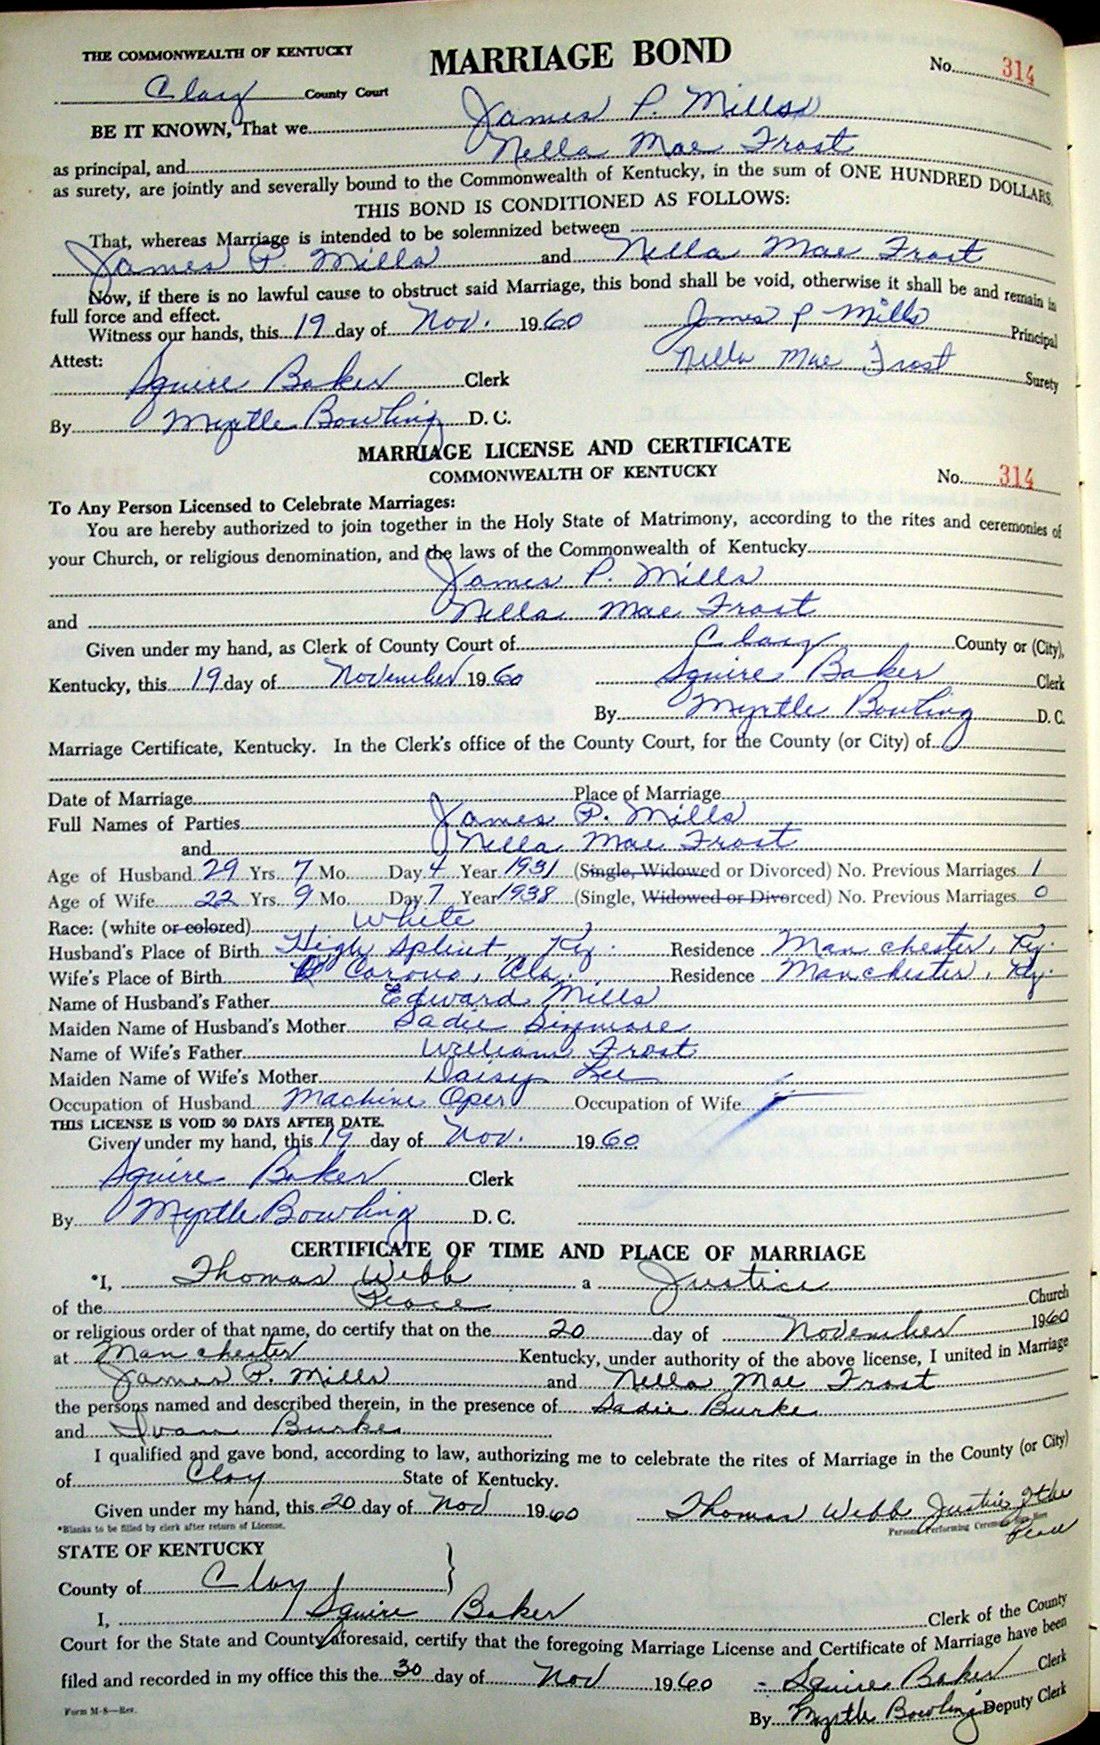 THE COMMONWEALTH OF KENTUCKY
MARRIAGE BOND
No. 314
Clay County Court
BE IT KNOWN, That we James P. Mills
as principal, and Nella Mae Frost
as surety, are jointly and severally bound to the Commonwealth of Kentucky, in the sum of ONE HUNDRED DOLLARS.
THIS BOND IS CONDITIONED AS FOLLOWS:
That, whereas Marriage is intended to be solemnized between
James P. Mills and Nella Mae Frost
Now, if there is no lawful cause to obstruct said Marriage, this bond shall be void, otherwise it shall be and remain in
full force and effect.
Witness our hands, this 19 day of Nov. 1960 James P Mills Principal
Attest: Nella Mae Frost Surety
Squire Baker Clerk
By Myrtle Bowling D. C.
MARRIAGE LICENSE AND CERTIFICATE
COMMONWEALTH OF KENTUCKY
No. 314
To Any Person Licensed to Celebrate Marriages:
You are hereby authorized to join together in the Holy State of Matrimony, according to the rites and ceremonies of
your Church, or religious denomination, and the laws of the Commonwealth of Kentucky
James P. Mills
and Nella Mae Frost
Given under my hand, as Clerk of County Court of Clay County or (City),
Kentucky, this 19 day of November 1960 Squire Baker Clerk
By Myrtle Bowling D. C.
Marriage Certificate, Kentucky. In the Clerk's office of the County Court, for the County (or City) of
Date of Marriage Place of Marriage
Full Names of Parties James P. Mills
and Nella Mae Frost
Age of Husband 29 Yrs. 7 Mo. Day 4 Year 1931 (Single, Widowed or Divorced) No. Previous Marriages 1
Age of Wife 22 Yrs. 9 Mo. Day 7 Year 1938 (Single, Widowed or Divorced) No. Previous Marriages 0
Race: (white or colored) White
Husband's Place of Birth High Splint, Ky. Residence Manchester, Ky.
Wife's Place of Birth Corona, Ala. Residence Manchester, Ky.
Name of Husband's Father Edward Mills
Maiden Name of Husband's Mother Sadie Sizemore
Name of Wife's Father William Frost
Maiden Name of Wife's Mother Daisy Lee
Occupation of Husband Machine Oper Occupation of Wife
THIS LICENSE IS VOID 30 DAYS AFTER DATE.
Given under my hand, this 19 day of Nov. 1960
Squire Baker Clerk
By Myrtle Bowling D. C.
CERTIFICATE OF TIME AND PLACE OF MARRIAGE
*I, Thomas Webb a Justice
of the Peace Church
or religious order of that name, do certify that on the 20 day of November 1960
at Manchester Kentucky, under authority of the above license, I united in Marriage
James P. Mills and Nella Mae Frost
the persons named and described therein, in the presence of Sadie Burke
and Ivan Burke
I qualified and gave bond, according to law, authorizing me to celebrate the rites of Marriage in the County (or City)
of Clay State of Kentucky.
Given under my hand, this 20 day of Nov 1960 Thomas Webb Justice of the
Peace
*Blanks to be filled by clerk after return of License.
Person Performing Ceremony
STATE OF KENTUCKY
County of Clay
I, Squire Baker Clerk of the County
Court for the State and County aforesaid, certify that the foregoing Marriage License and Certificate of Marriage have been
filed and recorded in my office this the 30 day of Nov 1960 Squire Baker Clerk
Form M-8—Rev.
By Myrtle Bowling Deputy Clerk